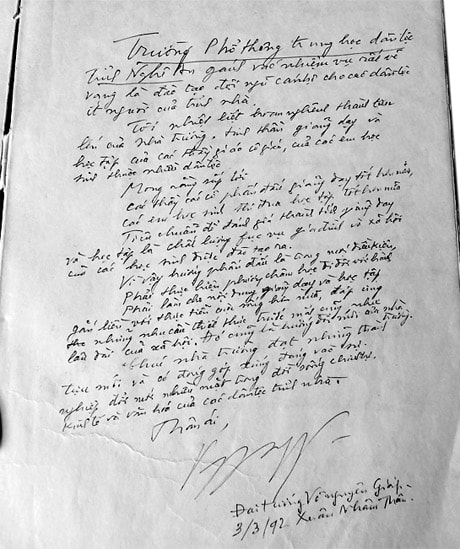 Trường Phổ thông trung học dân tộc
tỉnh Nghệ An gánh vác nhiệm vụ rất vẻ
vang là đào tạo đội ngũ cán bộ cho các dân tộc
ít người của tỉnh nhà.
Tôi nhiệt liệt hoan nghênh thành tựu
lớn của nhà trường, tinh thần giảng dạy và
học tập của các thầy giáo cô giáo, của các em học
sinh thuộc nhiều dân tộc
Mong rằng sắp tới
các thầy các cô phấn đấu giảng dạy tốt hơn nữa,
các em học sinh thi đua học tập tốt hơn nữa
Tiêu chuẩn để đánh giá thành tích giảng dạy
và học tập là chất lượng phục vụ gia đình và xã hội
của các học sinh được đào tạo ra.
Vì vậy hướng phấn đấu là trong mọi điều kiện
phải thực hiện phương châm học đi đôi với hành
Phải làm cho nội dung giảng dạy và học tập
gắn liền với thực tiễn của vùng bản nhà, đáp ứng
những nhu cầu thiết thực trước mắt cũng như
lâu dài của xã hội. Đó cũng là hướng đổi mới của nhà trường.
Chúc nhà trường đạt những thành
tựu mới và có đóng góp xứng đáng vào sự
nghiệp đổi mới nhiều mặt trong đời sống chính trị,
kinh tế và văn hóa của các dân tộc tỉnh nhà.
Thân ái,
Đại tướng Võ Nguyên Giáp.
3/3/92 Xuân Nhâm Thân.